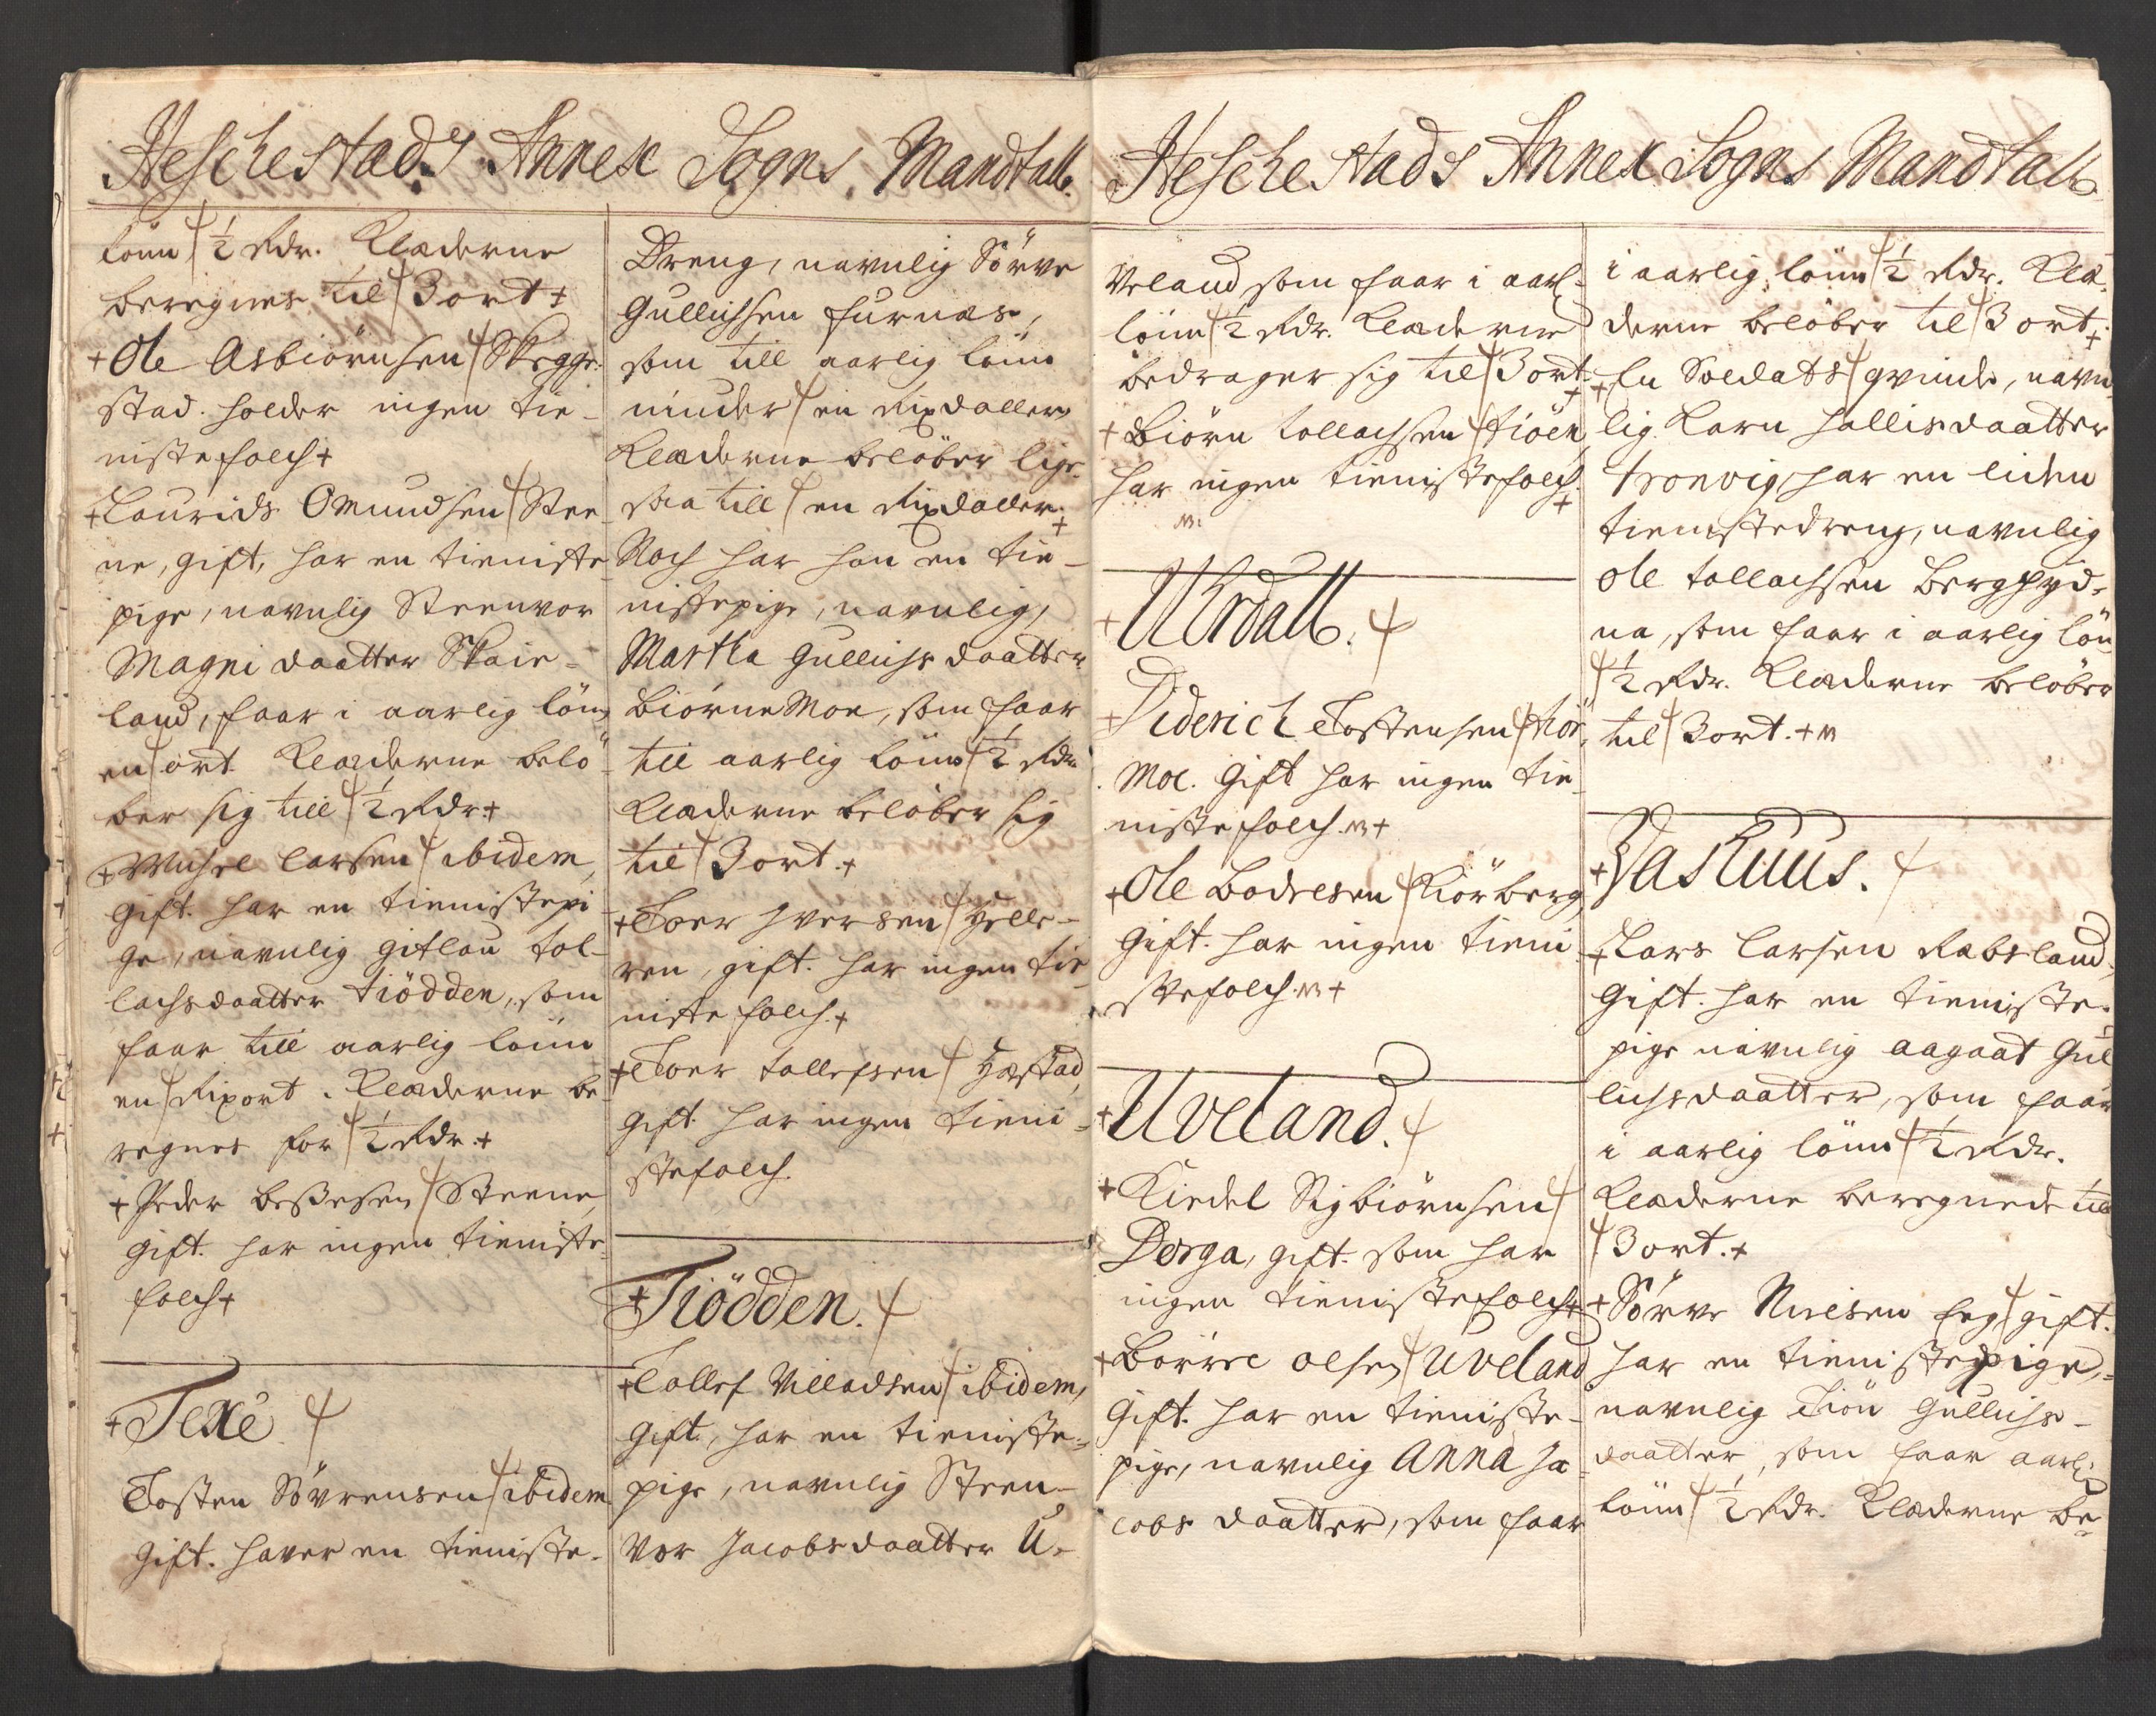 Heschestads Annex Sogns Mandtall
lönn ½ Rdr. Klæderne
beregnes til 3 ort +
+ Ole Asbiörnsen Skegge-
stad. holder ingen tie-
nistefolch +
+ Laurids Omundsen Stee-
ne, gift, har en tieniste
pige, navnlig Steenvor
Magni daatter Skaie-
land, faar i aarlig lön
en ort Klæderne belö-
ber sig till ½ Rdr. +
+ Michel Larsen ibidem,
Gift. har en tienistepi
ge, navnlig Gitlau Tol-
lachsdaatter Tiödden, som
faar till aarlig lönn
en Rixort. Klæderne be-
regnes for ½ Rdr. +
+ Peder Bessesen Steene,
Gift. har ingen tieniste-
folch +
+ Texe
Tosten Sövrensen ibidem
Gift. haver en tieniste-
Dreng, navnlig Sörve
Gullichsen Furnæs,
som till aarlig lönn
niuder en Rixdaller
Klæderne belöber lige-
saa till en Rixdaller. +
Noch har han en tie-
nistepige, navnlig,
Martha Gullichs daatter
Biörnemoe, som faar
till aarlig lönn ½ Rdr
Klæderne belöber sig
til 3 ort. +
+ Toer Iversen Helle-
ren, gift. har ingen tie-
niste folch. +
+ Toer Tollefsen Hæstad,
gift. har ingen tieni-
stefolch.
+ Tiödden.
+ Tollef Villadsen ibidem,
Gift, har en tieniste-
pige, navnlig Steen-
vor Jacobsdaatter U-
Heschestads Annex Sogns Mandtall
veland, som faar i aarl.
lönn ½ Rdr. Klæderne
bedrager sig til 3 ort +
+ Biörn Tollachsen Tiöen,
har ingen tienistefolch. +
+ Urdall.
+ Diderich Tostensen Kiör
Moe. Gift har ingen tie-
nistefolch. +
+ Ole Bodvesen Kiörberg,
Gift. har ingen tieni
stefolch. +
+ Uveland.
+ Kiedel Sigbiörnsen
Dorga, gift. som har
ingen tienistefolch +
+ Börre Olsen Uveland
Gift. har en tieniste-
pige, navnlig Anna Ja-
cobs daatter, som faar
i aarlig lönn ½ Rdr. Klæ-
derne belöber til 3 ort +
+ En Soldats qvinde, navn-
lig Karn Hallisdaatter
Tronvig har en liden
tienistedreng, navnlig
Ole Tollachsen Berghyd-
na, som faar i aarlig lön
½ Rdr. Klæderne belöber
til 3 ort. +
+ Vashuus.
+ Lars Larsen Rabsland.
Gift. har en tieniste-
pige navnlig Aagaat Gul
lichsdaatter, som faar
i aarlig lönn ½ Rdr.
Klæderne beregnede till
3 ort. +
+ Sörve Nielsen Eeg, gift.
har en tienistepige,
navnlig Siön Gullichs-
daatter, som faar aarl:
lönn ½ Rdr. Klæderne be-